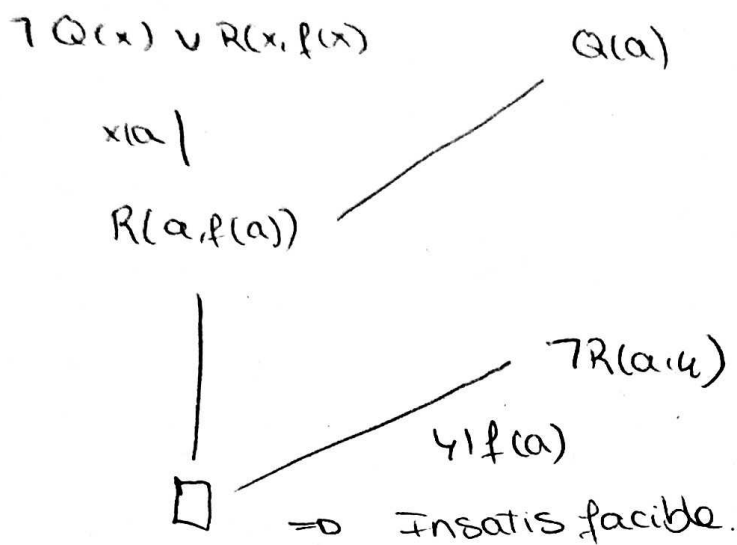 ¬Q(x) ∨ R(x,f(x)
Q(a)
x|a
R(a,f(a))
¬R(a,y)
y|f(a)
□ ⇒ Insatisfacible.